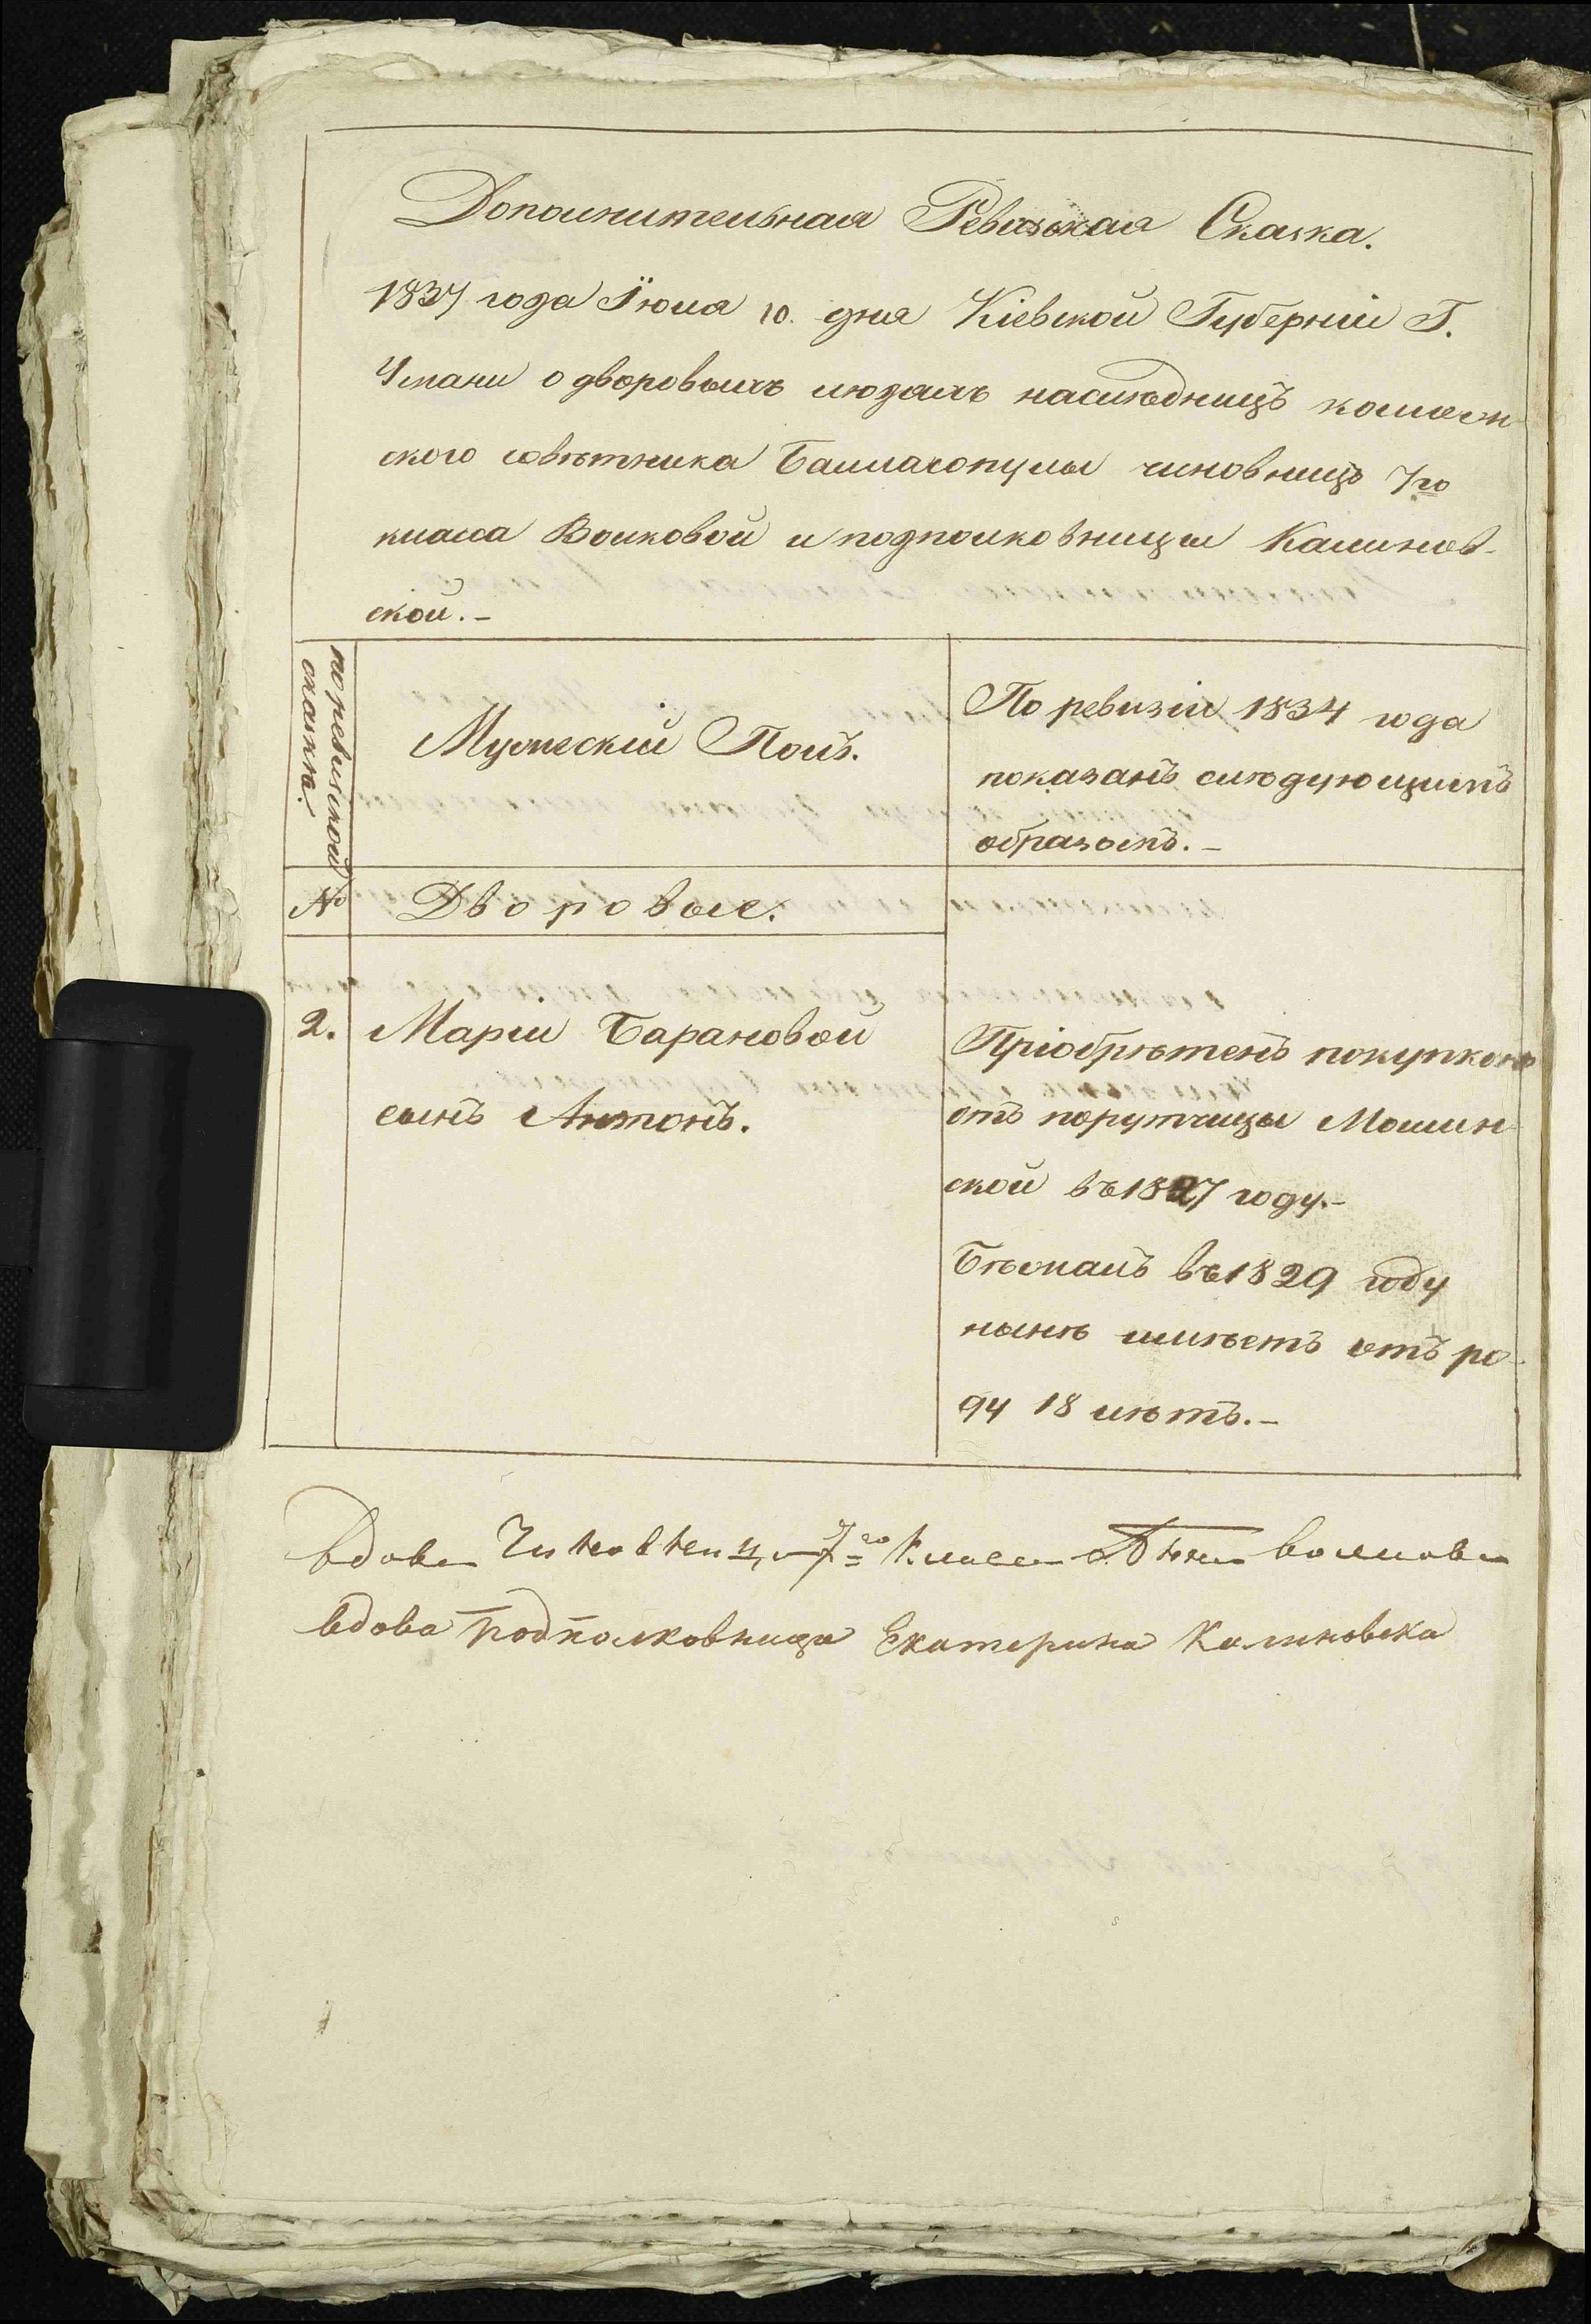 Дополнительная Ревизская Сказка.
1837 года Іюля 10. дня Кіевской Губерніи Г.
Умани о дворовыхъ людяхъ наслѣдницъ коллеж
ского совѣтника Балласопулы чиновницъ 7го
класса Волковой и подполковницы Калинов-
ской.-
по ревизской
сказкѣ.
Мужескій Полъ.
По ревизіи 1834 года
показанъ слѣдующимъ
образомъ.-
№
Дворовые.
2.
Маріи Барановой
сынъ Антонъ.
Пріобрѣтенъ покупкою
отъ порутчицы Мошин
ской въ 1827 году.-
Бѣжалъ въ 1829 году
нынѣ имѣетъ отъ ро-
ду 18 лѣтъ.-
вдова Чиновница 7го класса волкова
вдова подполковница Екатерина Калиновска